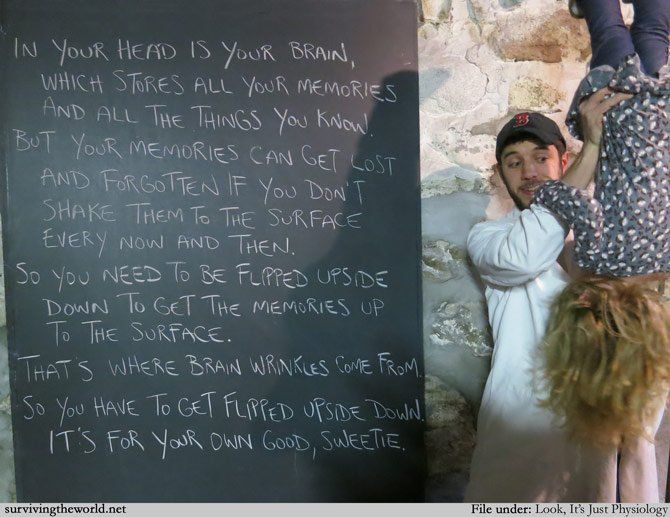 IN YOUR HEAD IS YOUR BRAIN,
WHICH STORES ALL YOUR MEMORIES
AND ALL THE THINGS YOU KNOW.
BUT YOUR MEMORIES CAN GET LOST
AND FORGOTTEN IF YOU DON'T
SHAKE THEM TO THE SURFACE
EVERY NOW AND THEN.
SO YOU NEED TO BE FLIPPED UPSIDE
DOWN TO GET THE MEMORIES UP
TO THE SURFACE.
THAT'S WHERE BRAIN WRINKLES COME FROM.
SO YOU HAVE TO GET FLIPPED UPSIDE DOWN.
IT'S FOR YOUR OWN GOOD, SWEETIE.
B
survivingtheworld.net
File under: Look, It's Just Physiology